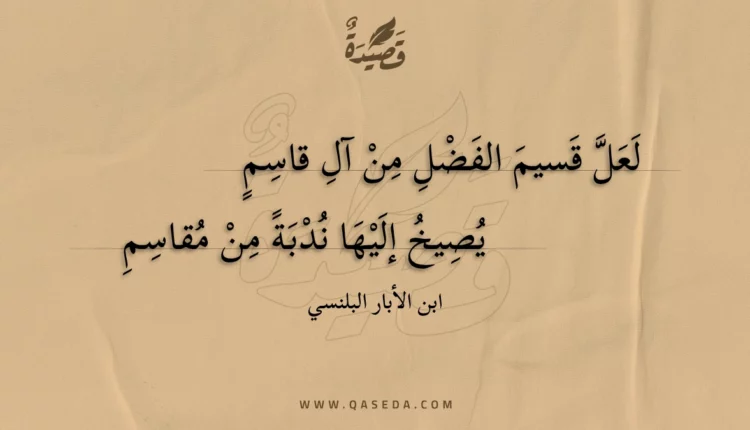 قَصِيْدَةٌ
لَعَلَّ قَسيمَ الفَضْلِ مِنْ آلِ قاسِمٍ
يُصِيخُ إلَيْهَا نُدْبَةً مِنْ مُقاسِمِ
ابن الأبار البلنسي
WWW.QASEDA.COM